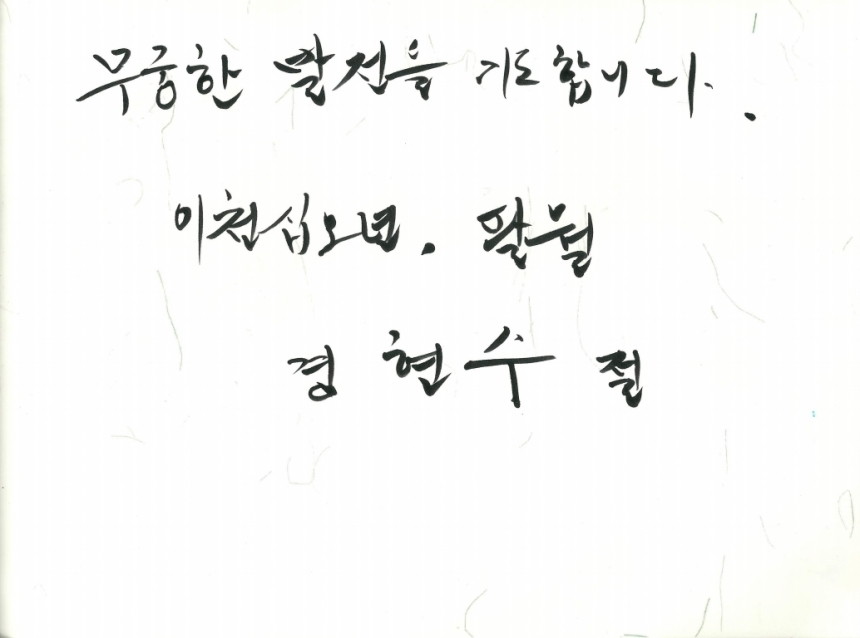 무궁한 발전을 기도합니다.
이천십오년. 팔월
경현수 절